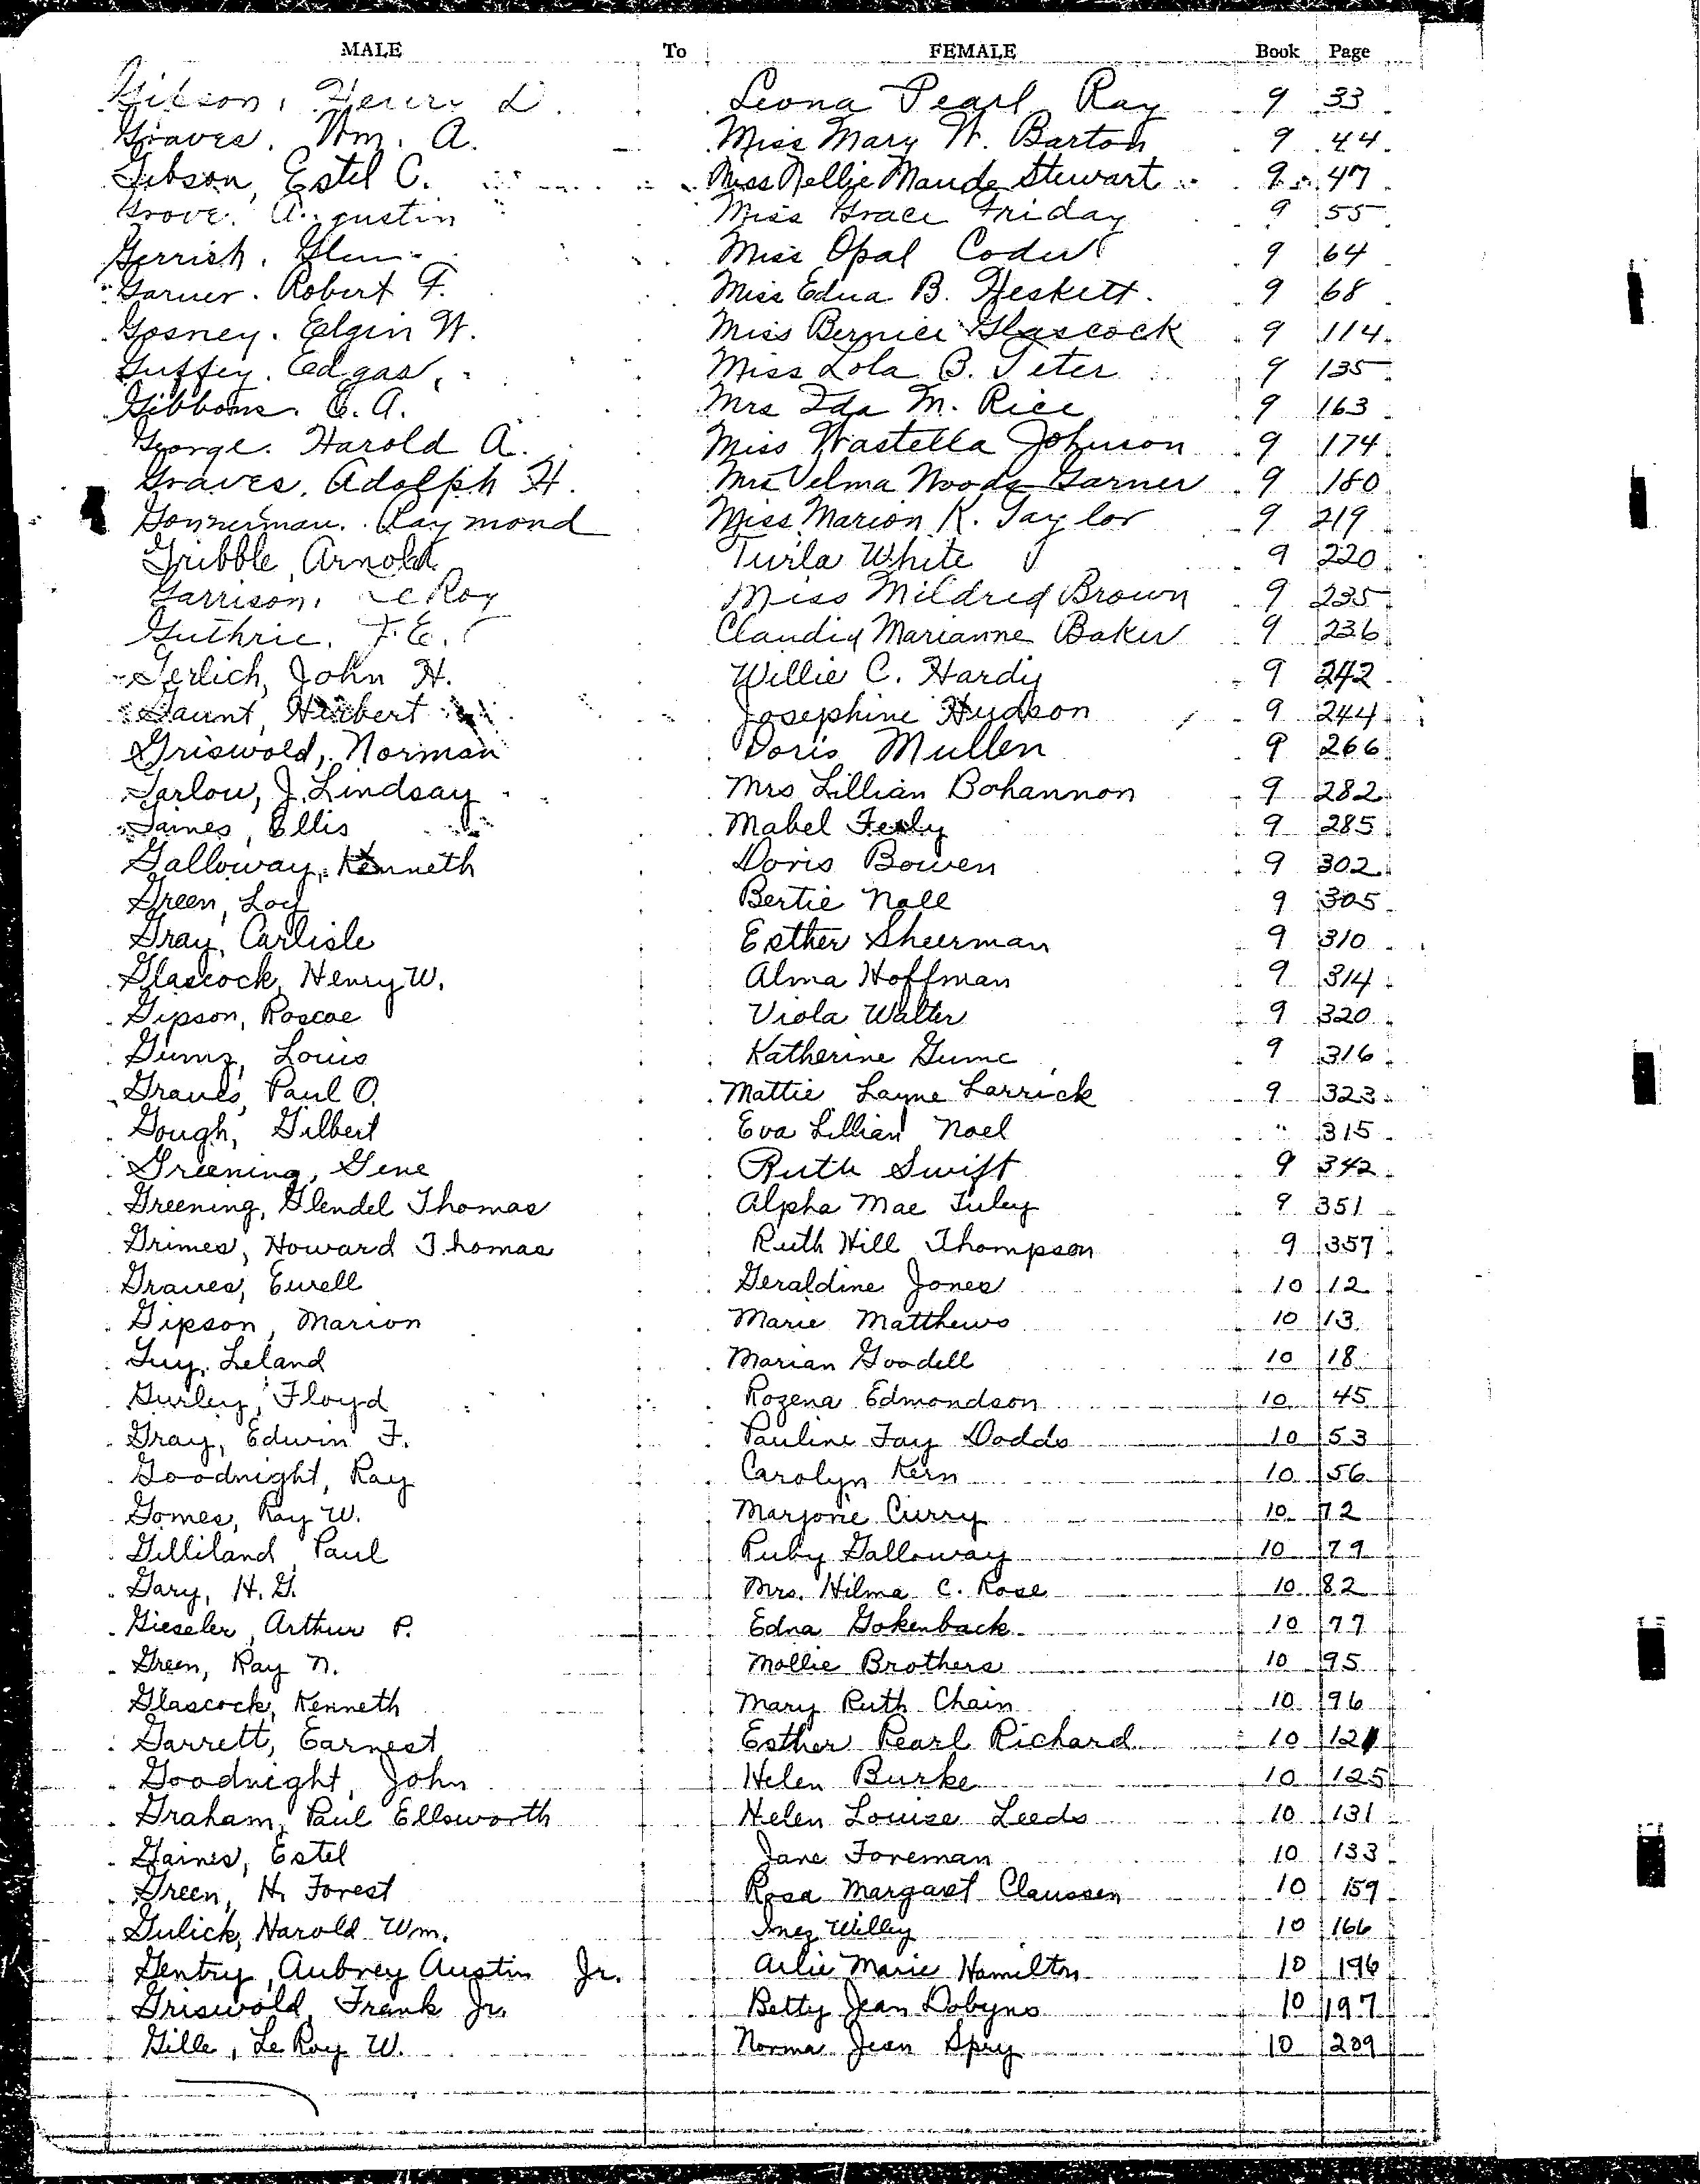 MALE To FEMALE Book Page
Gibson, Henry D. Leona Pearl Ray 9 33
Graves, Wm. A. Miss Mary W. Barton 9 44
Gibson, Estel C. Miss Nellie Maude Stewart 9 47
Grove, Augustin Miss Grace Friday 9 55
Gerrish, Glen Miss Opal Coder 9 64
Garner, Robert F. Miss Edna B. Heskett. 9 68
Gosney, Elgin W. Miss Bernice Glascock 9 114
Guffey, Edgar, Miss Lola B. Teter 9 135
Gibbons, C. A. Mrs Ida M. Rice 9 163
George, Harold A. Miss Wastella Johnson 9 174
Graves, Adolph H. Mrs Velma Woods Garner 9 180
Gonnerman, Raymond Miss Marion K. Taylor 9 219
Gribble, Arnold Turla White 9 220
Garrison, LeRoy Miss Mildred Brown 9 235
Guthrie, F. E. Claudia Marianne Baker 9 236
Gerlich, John H. Willie C. Hardy 9 242
Gaunt, Herbert Josephine Hudson 9 244
Griswold, Norman Doris Mullen 9 266
Garlow, J. Lindsay Mrs Lillian Bohannon 9 282
Gaines, Ellis Mabel 9 285
Galloway, Kenneth Doris Bowen 9 302
Green, Loy Bertie Nall 9 305
Gray, Carlisle Esther Sheerman 9 310
Glascock, Henry W. Alma Hoffman 9 314
Gipson, Roscoe Viola Walter 9 320
Gumz, Louis Katherine 9 316
Graves, Paul O. Mattie Layne Larrick 9 323
Gough, Gilbert Eva Lillian Noel " 315
Greening, Gene Ruth Swift 9 342
Greening, Glendel Thomas Alpha Mae Tuley 9 351
Grimes, Howard Thomas Ruth Hill Thompson 9 357
Graves, Ewell Geraldine Jones 10 12
Gipson, Marion Marie Matthews 10 13
Guy, Leland Marian Goodell 10 18
Gurley, Floyd Rozena Edmondson 10 45
Gray, Edwin F. Pauline Fay Dodds 10 53
Goodnight, Ray Carolyn Kern 10 56
Gomes, Ray W. Marjorie Curry 10 72
Gilliland, Paul Ruby Galloway 10 79
Gary, H. G. Mrs. Hilma C. Rose 10 82
Gieseler, Arthur P. Edna Gokenback 10 77
Green, Ray N. Mollie Brothers 10 95
Glascock, Kenneth Mary Ruth Chain 10 96
Garrett, Earnest Esther Pearl Richard 10 121
Goodnight, John Helen Burke 10 125
Graham, Paul Ellsworth Helen Louise Leeds 10 131
Gaines, Estel Jane Foreman 10 133
Green, H. Forest Rosa Margaret Claussen 10 159
Gulick, Harold Wm. Inez Willey 10 166
Gentry, Aubrey Austin Jr. Arlie Marie Hamilton 10 196
Griswold, Frank Jr. Betty Jean Dobyns 10 197
Gille, Le Roy W. Norma Jean Spry 10 209